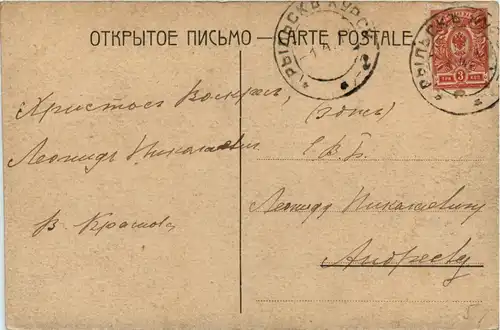 ОТКРЫТОЕ ПИСЬМО — CARTE POSTALE
РЫЛЬСКЪ КУРСК
РЫЛЬСКЪ
3
Христосъ Воскресъ,
Леонидъ Николаевич
В. Краснов
(здѣсь)
Е.В.Б.
Леониду Николаевичу
Андрееву